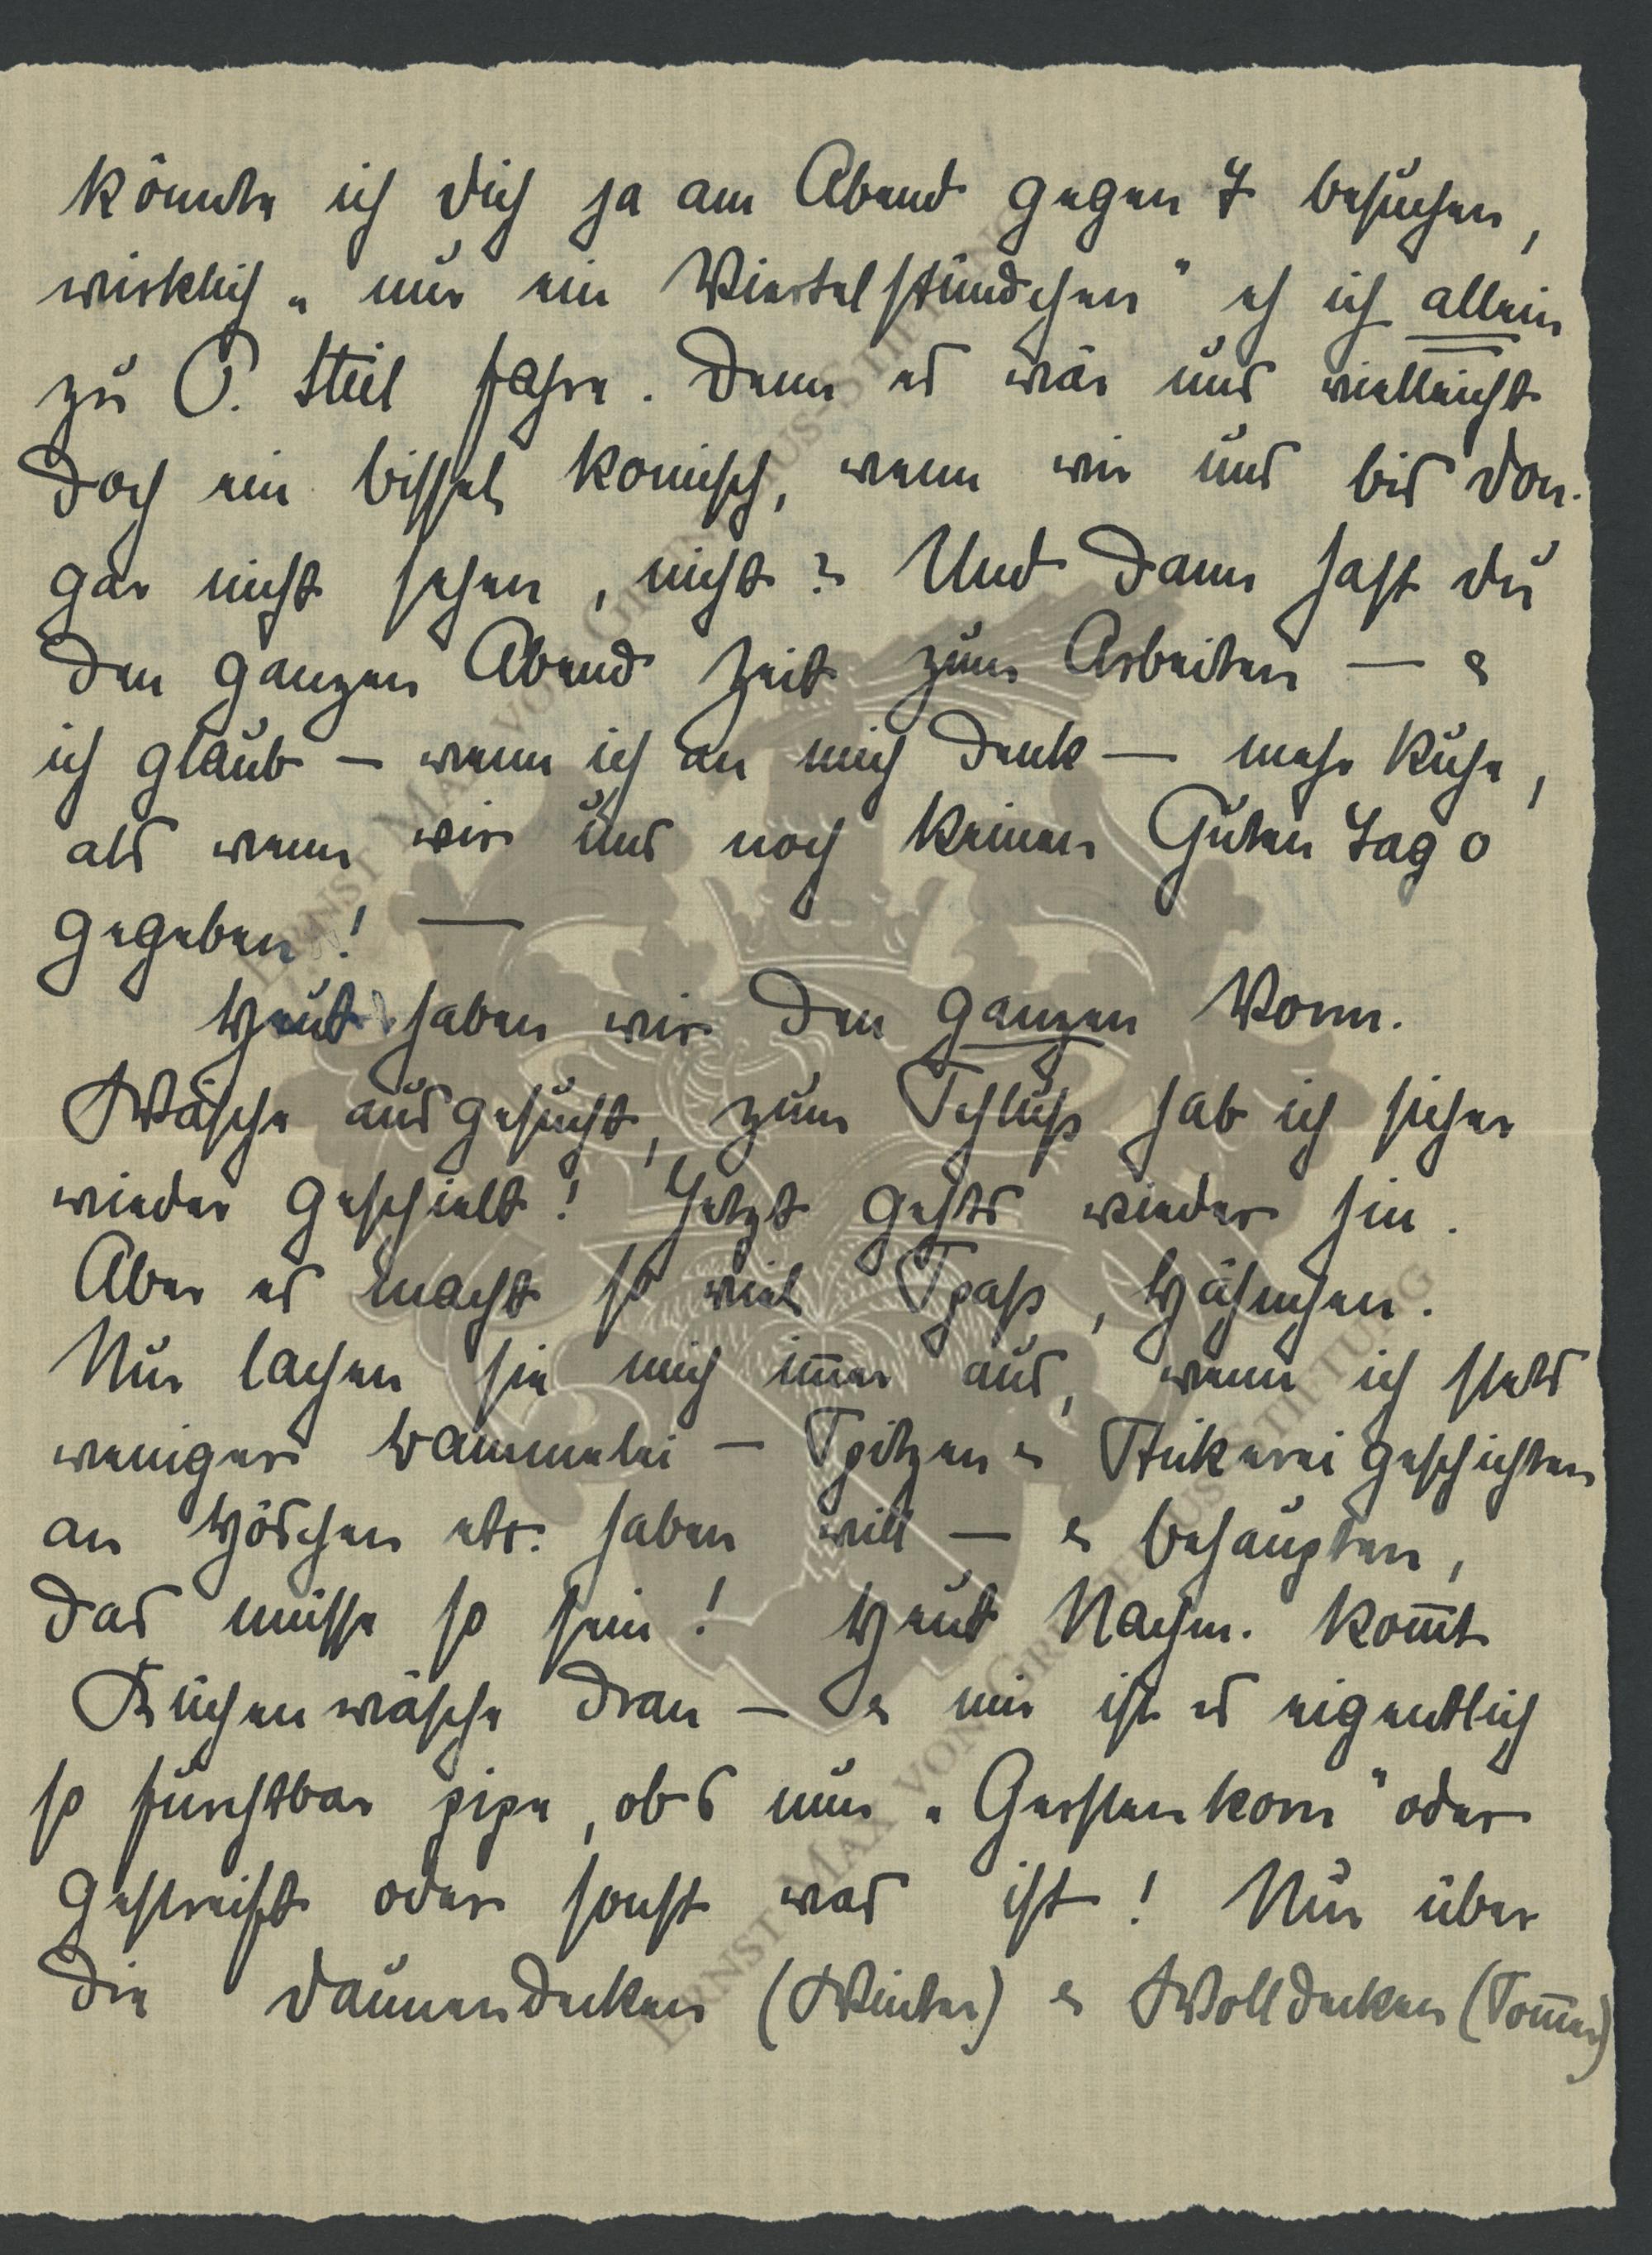 könnte ich dich ja am Abend gegen 7 besuchen,
wirklich „nur ein Viertelstündchen" eh ich allein
zu O. Stül fahre. Denn es wär uns vielleicht
doch ein bissel komisch, wenn wir uns bis Don.
gar nicht sehen, nicht? Und dann hast du
den ganzen Abend Zeit zum Arbeiten — &
ich glaub — wenn ich an mich denk — mehr Ruhe,
als wenn wir uns noch keinen Guten Tag
gegeben! —
Heut haben wir den ganzen Vorm.
Wäsche ausgesucht, zum Schluß hab ich sicher
wieder geschielt! Jetzt gehts wieder hin.
Aber es macht so viel Spaß, Hähnchen.
Nur lachen sie mich im̅er aus, wenn ich stets
weniger Bammelei – Spitzen & Stickereigeschichten
an Höschen etc. haben will — & behaupten,
das müsse so sein! Heut Nachm. kom̅t
Küchenwäsche dran — & mir ist es eigentlich
so furchtbar pipe, obs nun „Gerstenkorn" oder
gestreift oder sonst was ist! Nur über
die Daunendecken (Winter) & Wolldecken (Som̅er)
ERNST MAX VON GRUNELIUS-STIFTUNG
ERNST MAX VON GRUNELIUS-STIFTUNG